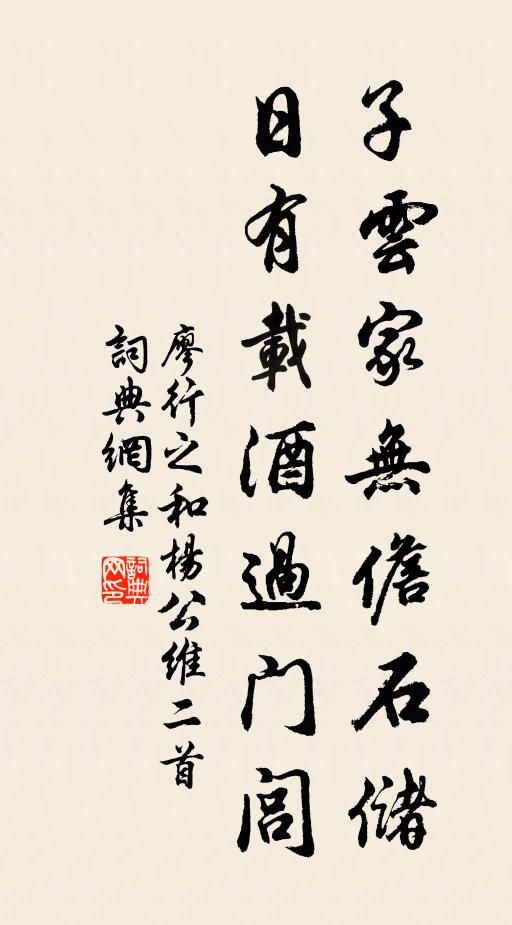 子雲家無儋石儲
日有載酒過门闾
廖行之和楊公維二首
詞典網集
詞典网印